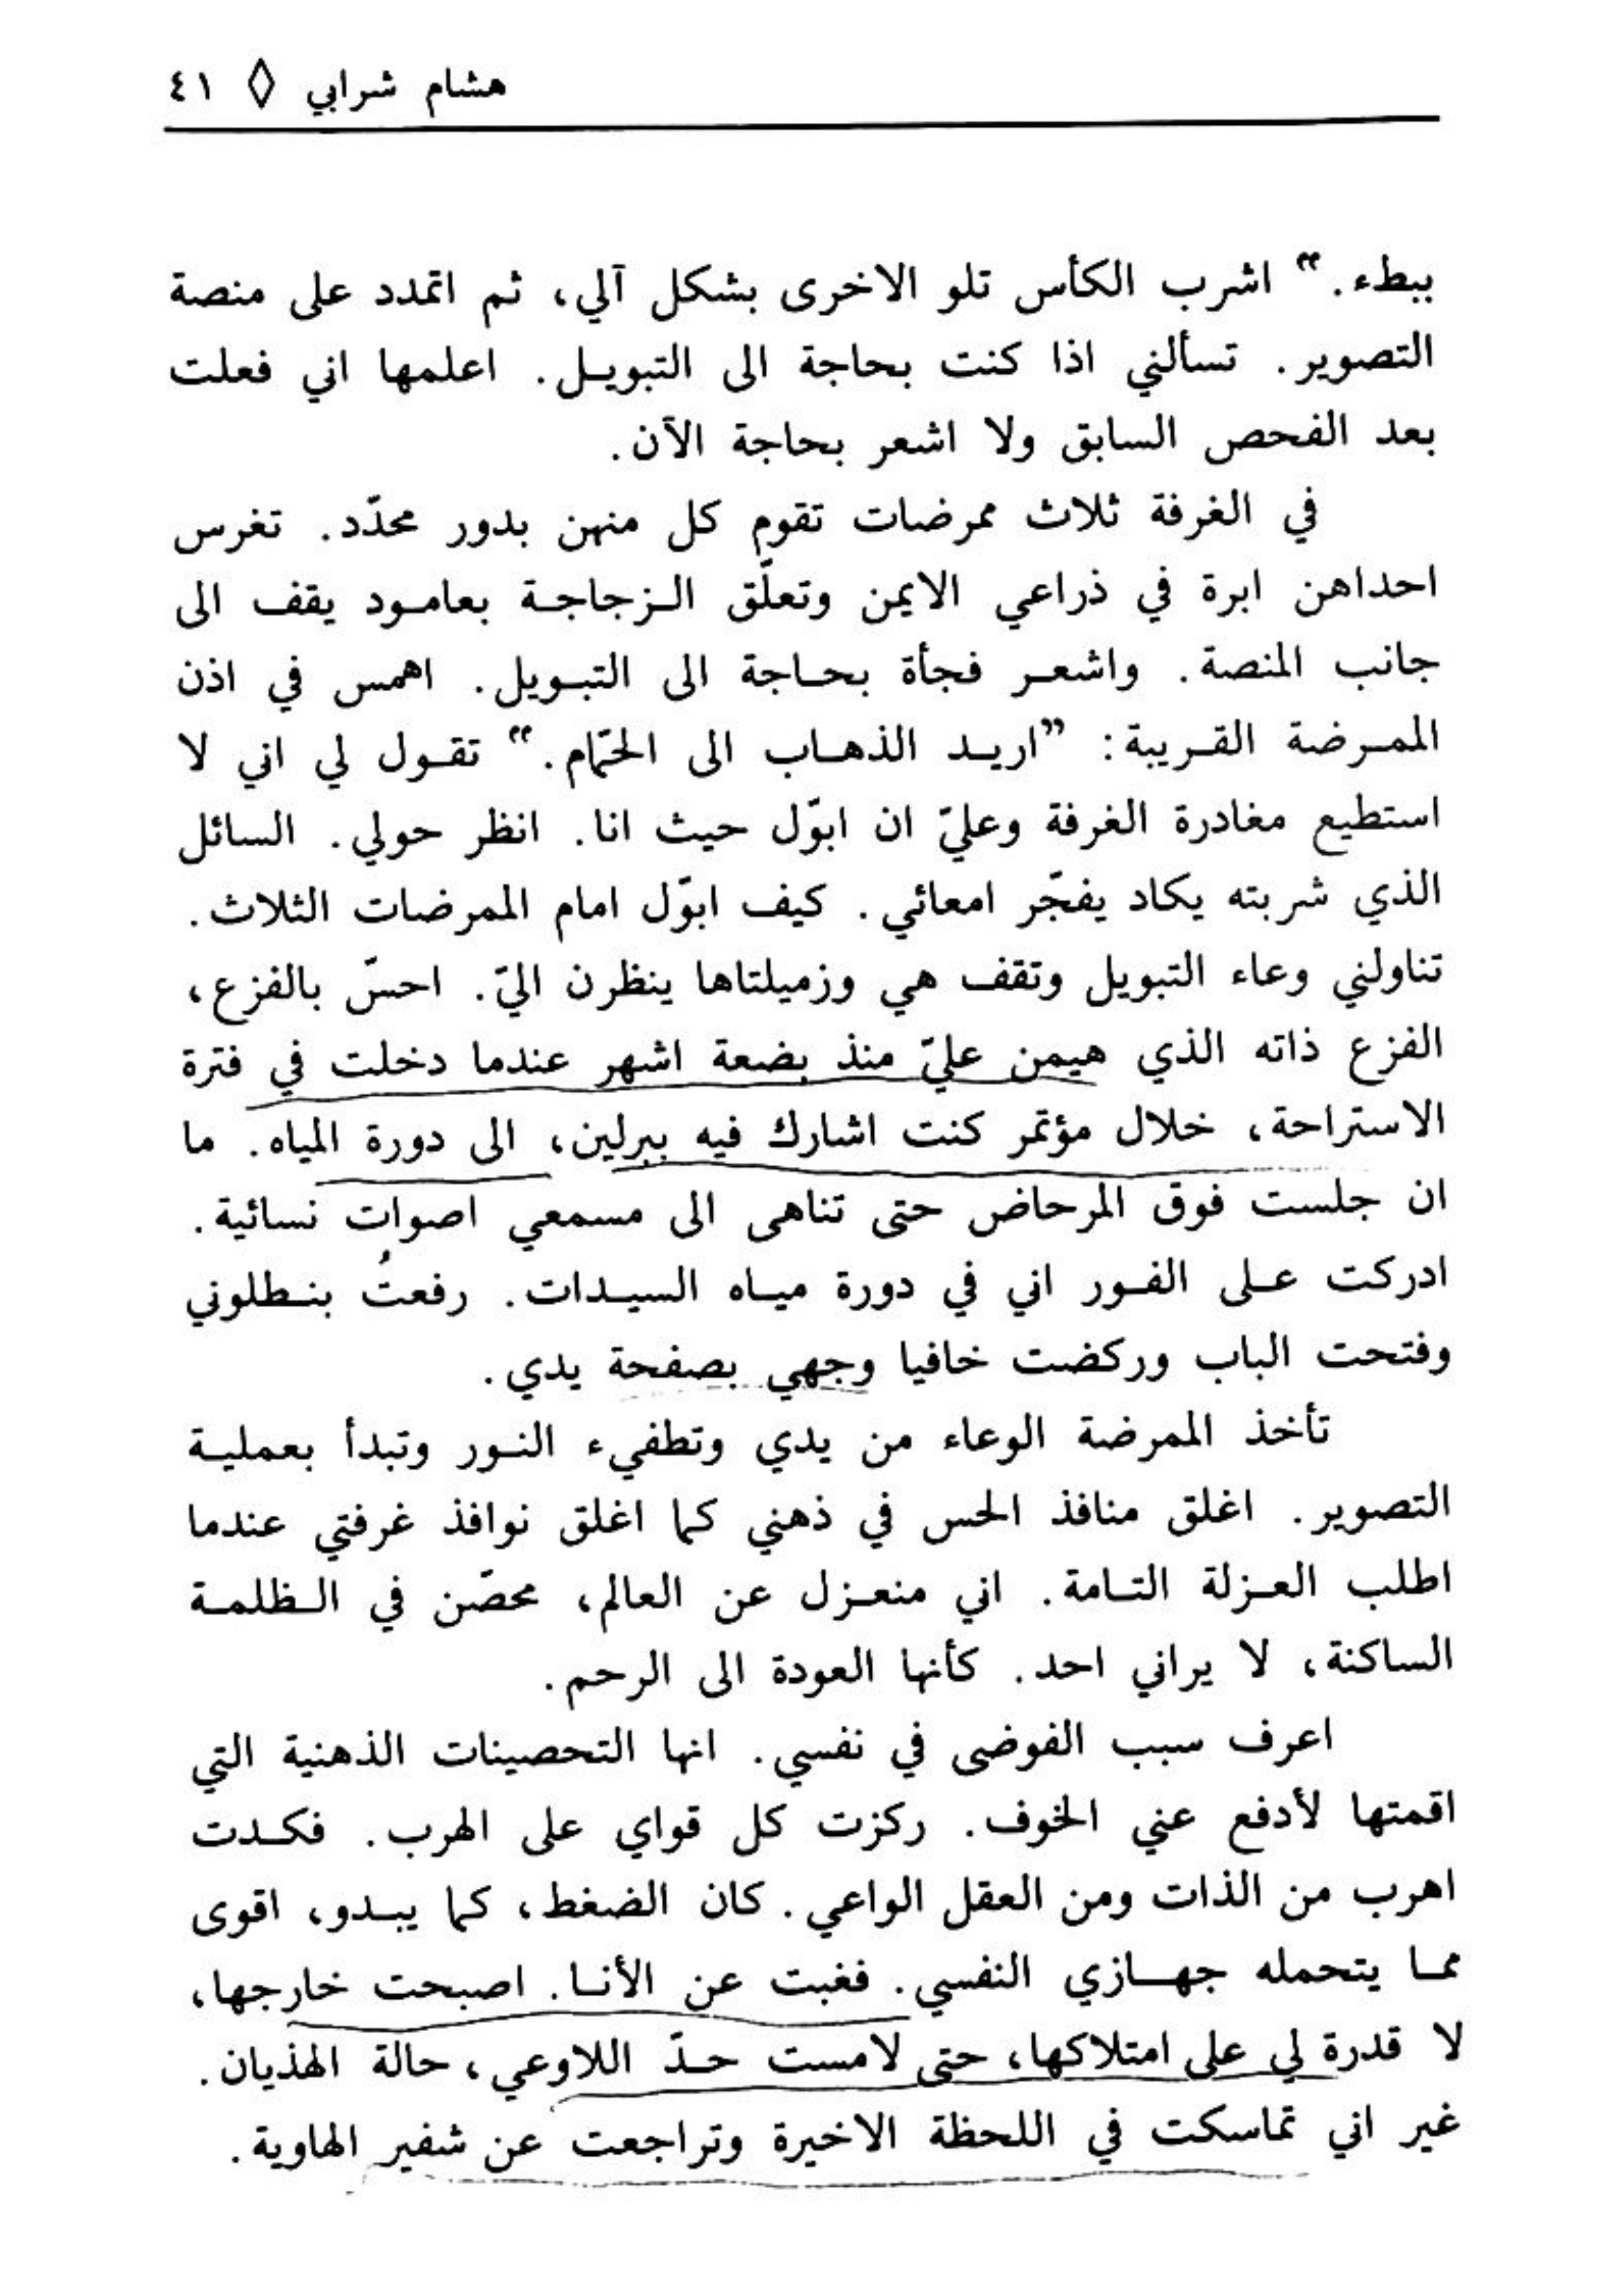 هشام شرابي ◊ ٤١
ببطء.“ اشرب الكأس تلو الاخرى بشكل آلي، ثم اتمدد على منصة
التصوير. تسألني اذا كنت بحاجة الى التبويل. اعلمها اني فعلت
بعد الفحص السابق ولا اشعر بحاجة الآن.
في الغرفة ثلاث ممرضات تقوم كل منهن بدور محدّد. تغرس
احداهن ابرة في ذراعي الايمن وتعلّق الزجاجة بعامود يقف الى
جانب المنصة. واشعر فجأة بحاجة الى التبويل. اهمس في اذن
الممرضة القريبة: ”اريد الذهاب الى الحمّام.“ تقول لي اني لا
استطيع مغادرة الغرفة وعليّ ان ابوّل حيث انا. انظر حولي. السائل
الذي شربته يكاد يفجّر امعائي. كيف ابوّل امام الممرضات الثلاث.
تناولني وعاء التبويل وتقف هي وزميلتاها ينظرن اليّ. احسّ بالفزع،
الفزع ذاته الذي هيمن عليّ منذ بضعة اشهر عندما دخلت في فترة
الاستراحة، خلال مؤتمر كنت اشارك فيه ببرلين، الى دورة المياه. ما
ان جلست فوق المرحاض حتى تناهى الى مسمعي اصوات نسائية.
ادركت على الفور اني في دورة مياه السيدات. رفعتُ بنطلوني
وفتحت الباب وركضت خافيا وجهي بصفحة يدي.
تأخذ الممرضة الوعاء من يدي وتطفيء النور وتبدأ بعملية
التصوير. اغلق منافذ الحس في ذهني كما اغلق نوافذ غرفتي عندما
اطلب العزلة التامة. اني منعزل عن العالم، محصّن في الظلمة
الساكنة، لا يراني احد. كأنها العودة الى الرحم.
اعرف سبب الفوضى في نفسي. انها التحصينات الذهنية التي
اقمتها لأدفع عني الخوف. ركزت كل قواي على الهرب. فكدت
اهرب من الذات ومن العقل الواعي. كان الضغط، كما يبدو، اقوى
مما يتحمله جهازي النفسي. فغبت عن الأنا. اصبحت خارجها،
لا قدرة لي على امتلاكها، حتى لامست حدّ اللاوعي، حالة الهذيان.
غير اني تماسكت في اللحظة الاخيرة وتراجعت عن شفير الهاوية.